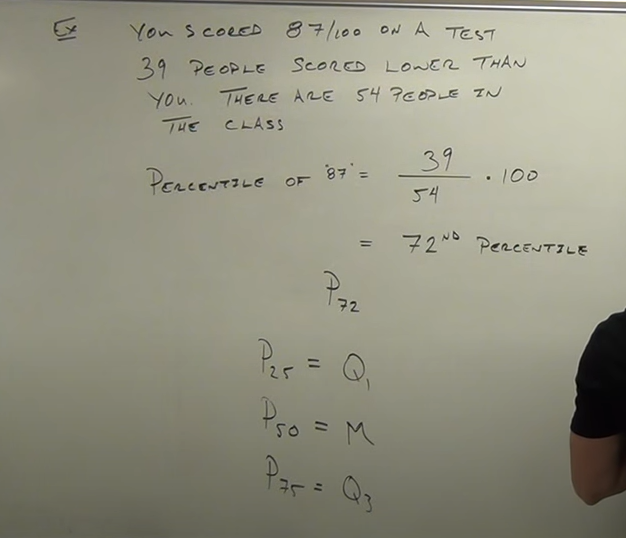 Ex YOU SCORED 87/100 ON A TEST
39 PEOPLE SCORED LOWER THAN
YOU. THERE ARE 54 PEOPLE IN
THE CLASS
PERCENTILE OF "87" = 39/54 · 100
= 72ND PERCENTILE
P72
P25 = Q1
P50 = M
P75 = Q3